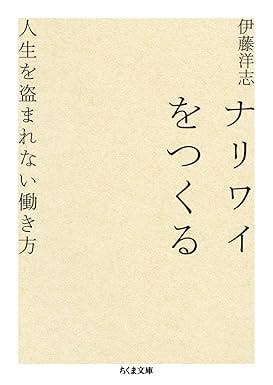 伊藤洋志
ナリワイ
をつくる
人生を盗まれない働き方
ちくま文庫